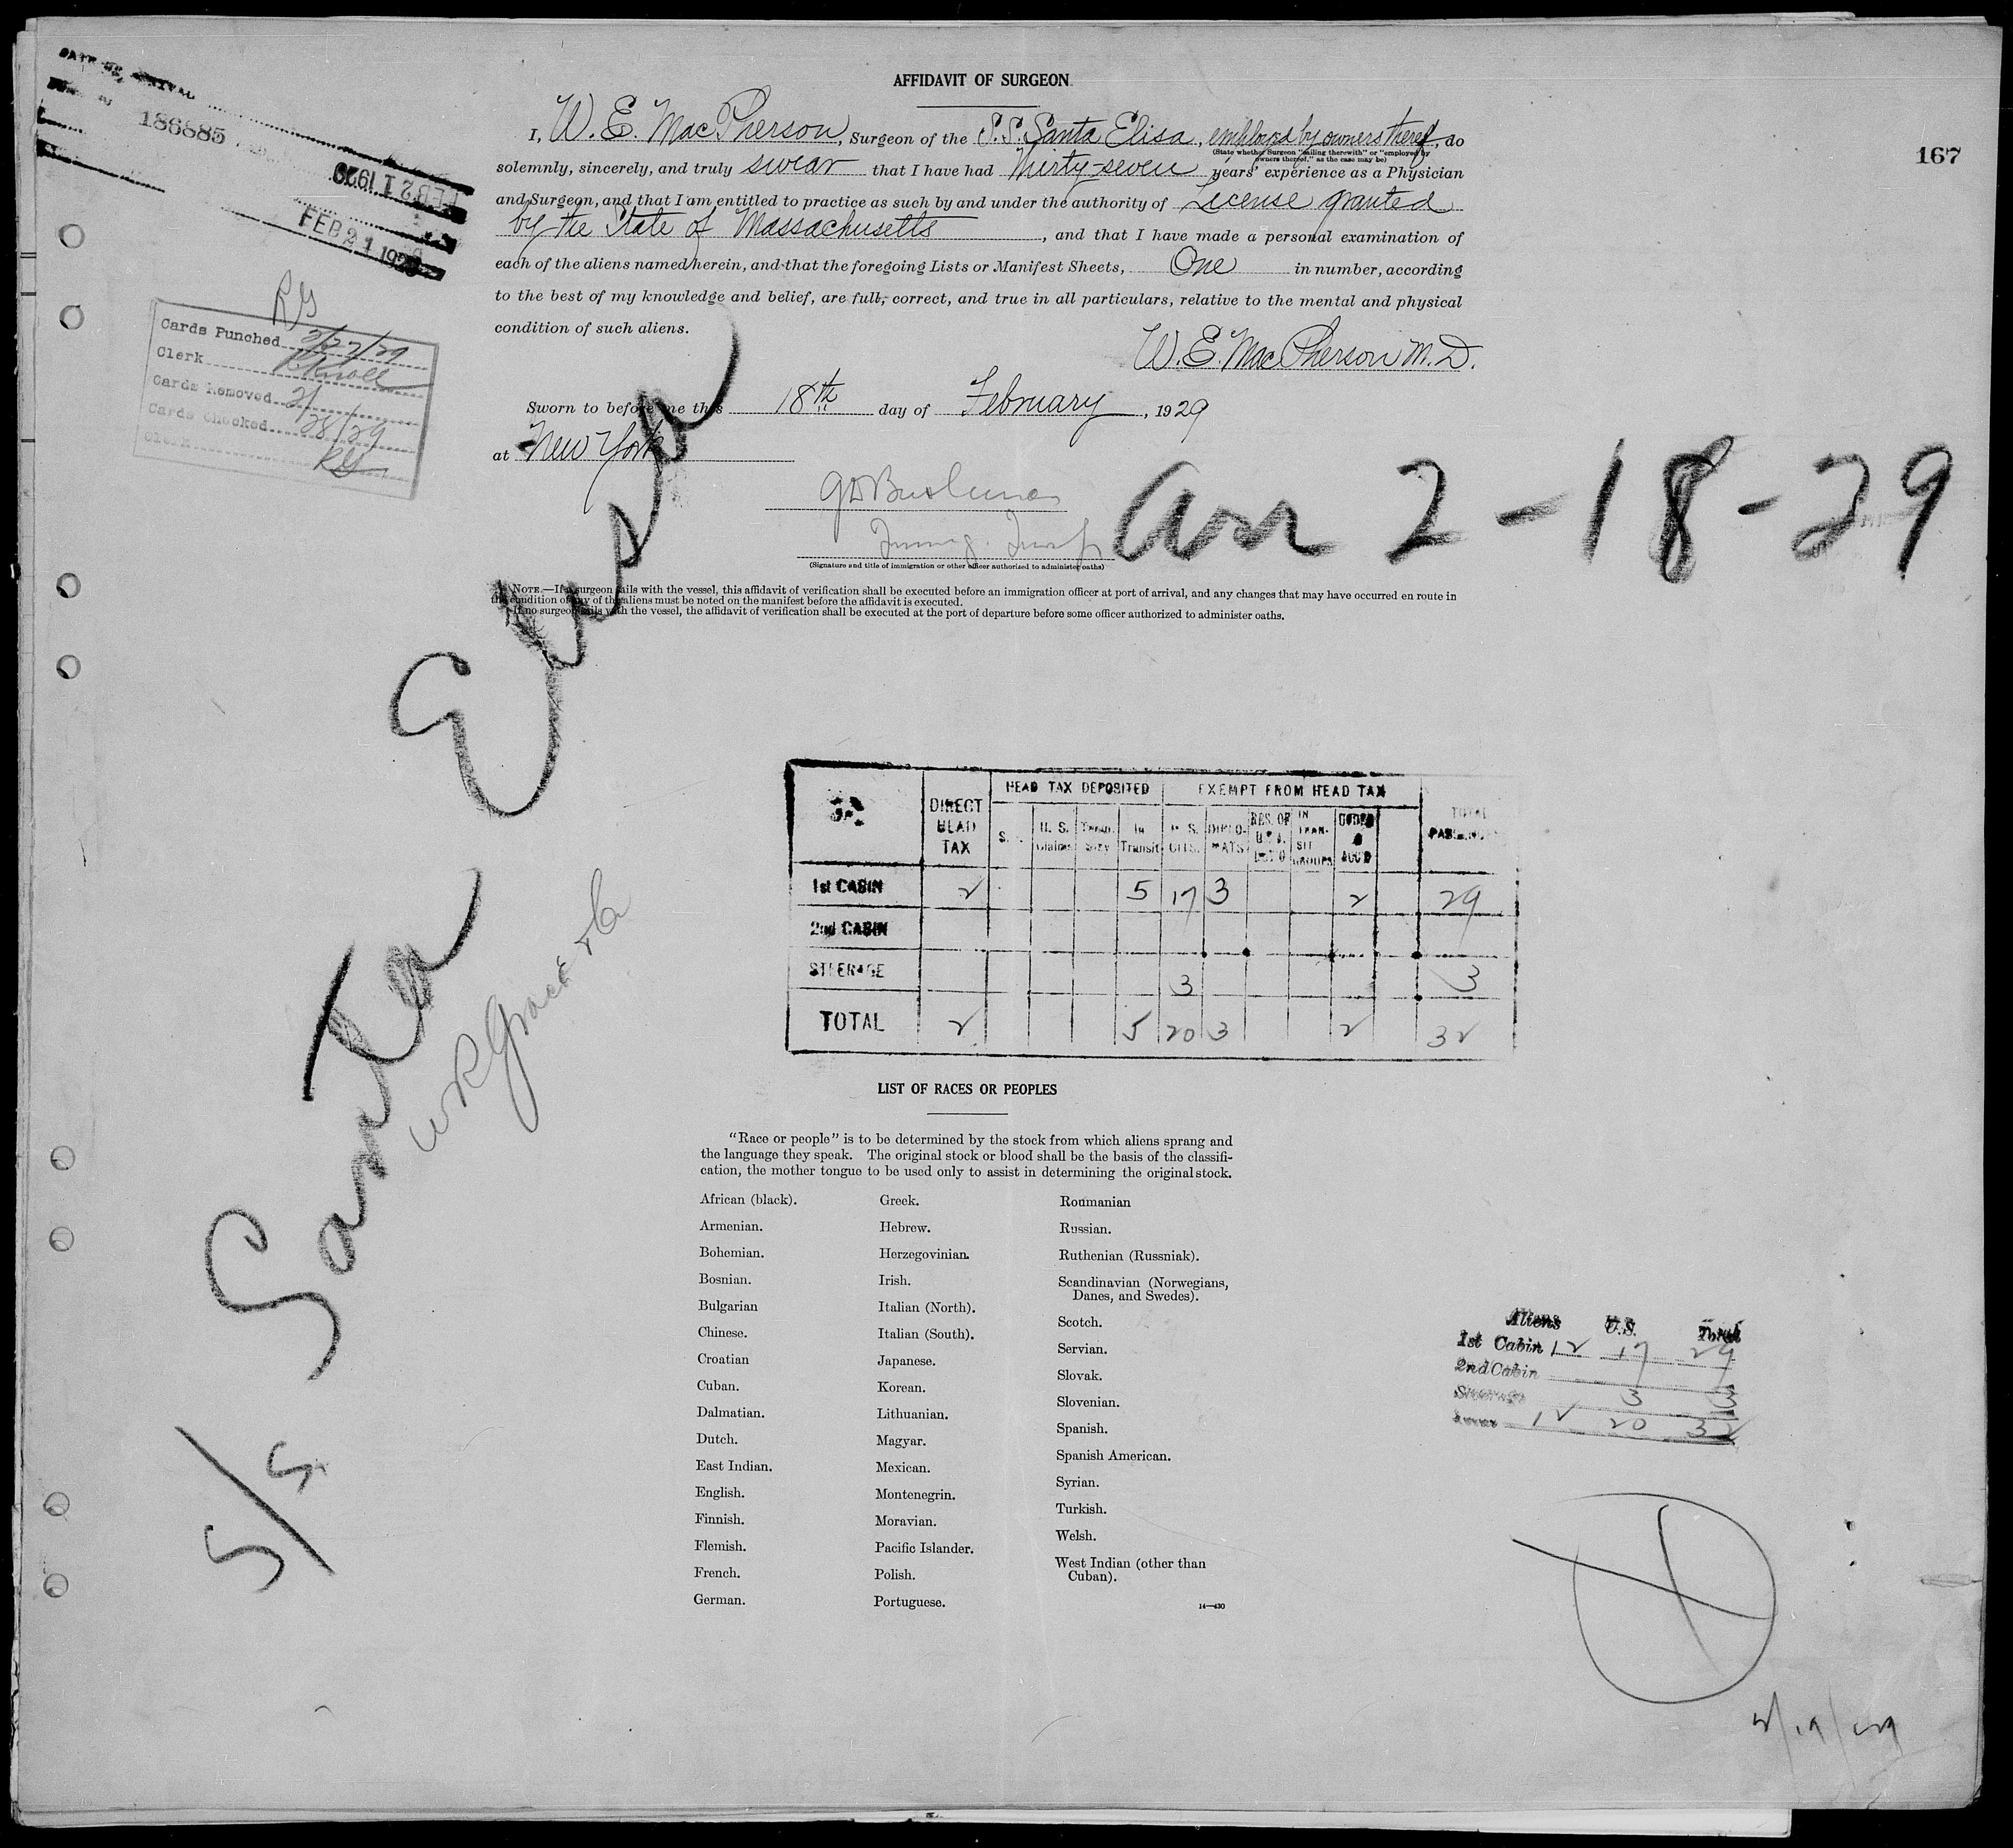 DATE OF ARRIVAL
186885
FEB 21 1929
FEB 21 1929
167
AFFIDAVIT OF SURGEON
I, W. E. MacPherson, Surgeon of the S.S. Santa Elisa, employed by owners thereof, do
(State whether Surgeon "sailing therewith" or "employed by
owners thereof," as the case may be)
solemnly, sincerely, and truly swear that I have had Thirty-seven years' experience as a Physician
and Surgeon, and that I am entitled to practice as such by and under the authority of License granted
by the State of Massachusetts, and that I have made a personal examination of
each of the aliens named herein, and that the foregoing Lists or Manifest Sheets, One in number, according
to the best of my knowledge and belief, are full, correct, and true in all particulars, relative to the mental and physical
condition of such aliens.
W. E. MacPherson M. D.
Sworn to before me this 18th day of February, 1929
at New York
(Signature and title of immigration or other officer authorized to administer oaths)
RG
Cards Punched 2/27/29
Clerk
Cards Removed
Cards Checked 28/29
Clerk RG
arr 2-18-29
NOTE.—If a surgeon sails with the vessel, this affidavit of verification shall be executed before an immigration officer at port of arrival, and any changes that may have occurred en route in
the condition of any of the aliens must be noted on the manifest before the affidavit is executed.
If no surgeon sails with the vessel, the affidavit of verification shall be executed at the port of departure before some officer authorized to administer oaths.
S/S Santa Elisa
W R Grace & Co
HEAD TAX DEPOSITED EXEMPT FROM HEAD TAX
DIRECT HEAD TAX U. S. Claims In Transit U. S. CITS. DIPLOMATS IN TRANSIT GROUPS TOTAL PASSENGERS
1st CABIN 2 5 17 3 2 29
2nd CABIN
STEERAGE 3 3
TOTAL 2 5 20 3 2 32
LIST OF RACES OR PEOPLES
"Race or people" is to be determined by the stock from which aliens sprang and
the language they speak. The original stock or blood shall be the basis of the classifi-
cation, the mother tongue to be used only to assist in determining the original stock.
African (black).
Armenian.
Bohemian.
Bosnian.
Bulgarian
Chinese.
Croatian
Cuban.
Dalmatian.
Dutch.
East Indian.
English.
Finnish.
Flemish.
French.
German.
Greek.
Hebrew.
Herzegovinian.
Irish.
Italian (North).
Italian (South).
Japanese.
Korean.
Lithuanian.
Magyar.
Mexican.
Montenegrin.
Moravian.
Pacific Islander.
Polish.
Portuguese.
Roumanian
Russian.
Ruthenian (Russniak).
Scandinavian (Norwegians,
Danes, and Swedes).
Scotch.
Servian.
Slovak.
Slovenian.
Spanish.
Spanish American.
Syrian.
Turkish.
Welsh.
West Indian (other than
Cuban).
14—430
Aliens U.S. Total
1st Cabin 12 17 29
2nd Cabin
Steerage 3 3
12 20 32
2/19/29